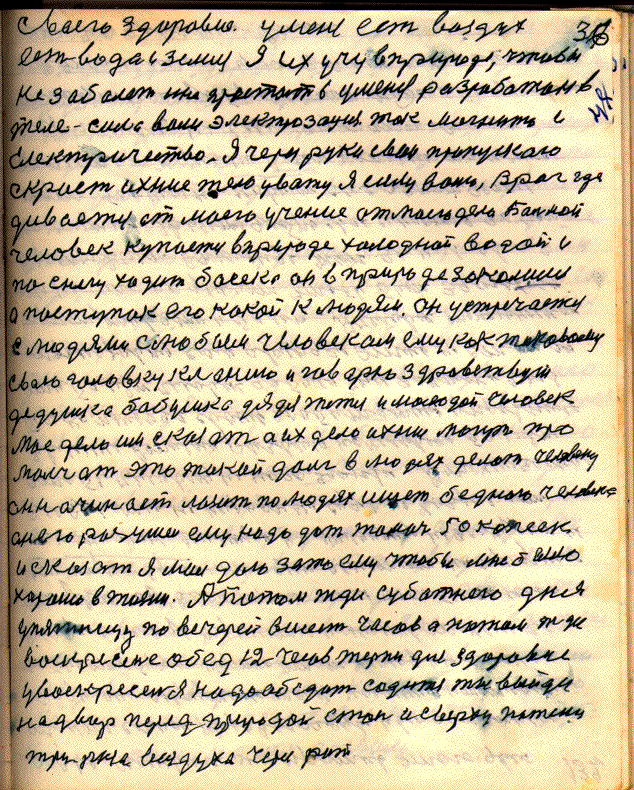 своего здоровия. умене ест воздух
ест вода и земля Я их учу в природе, чтобы
не забалет ни простыть умене разработан в
теле – сила воли электрозация ток магнито и
електричество. Я через руки свои пропускаю
скрост ихние тело увагу Я силу вам, Враг где
девается от моего учение от моего дела Балной
человек купается в природе холодной водой и
по снегу ходит босека он в природе законили
а поступок его какой к людям. Он устречается
с людями с любыем человекам ему как таковому
свою головку кланию и говарю здравствуй
дедушка бабушка дядя тетя и молодой человек
мое дело им сказат а их дело ихни могут про
молчат это такой долг в людях делат человеку
он начинает лазит по людях ищет бедного человека
а него разуши ему надо дат такому 50 копеек
и сказат я маю даю зато ему чтобы мне было
харашо в жизни. А потом жди субатнего дня
упятницу по вечерей висет часов а потом жди
воскресене обед 12 часов терпи для здоровие
увоскресеня надо абедат садится ты выйди
надвор перед природой стан и сверху потени
три раза воздуха через рот